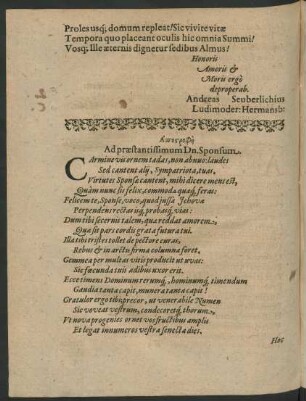 Proles usq; domum repleat/Sic vivite vitæ
Tempora quo placeant oculis hîc omnia Summi/
Vosq; Ille æternis dignetur sedibus Almus/
Honoris
Amoris &
Moris ergò
deproperab.
Andreas Seuberlichius
Ludimoder: Hermansb:
Ad præstantissimum Dn. Sponsum.
CArmine vis ornem tædas, non abnuo: laudes
Sed cantent alij, Sympatriota, tuas.
Virtutes Sponsæ cantent, mihi dicere mens est,
Quàm nunc sis felix, commoda quaq; feras:
Felicem te, Sponse, voco, quod jussa Jehovæ
Perpendens recta ingrediens, probaq; vias:
Dum tibi secernis talem, quæ reddat amorem,
Quæ sit pars cordis grata futura tui.
Illa tibi tristes tollet de pectore curas,
Rebus & in arctis firma columna foret,
Gemmea per multas vitis producit ut uvas:
Sic fœcunda tuis ædibus uxor erit.
Ecce timens Dominum terumq; hominumq; timendum
Gaudia tanta capit, munera tanta capit!
Gratulor ergò tibi precor, ut venerabile Numen
Sic voveat vestrum, condecoretq; thorum.
Ut nova progenies ornet vos fructibus amplis
Et legat innumeros vestra senecta dies.
Hæc